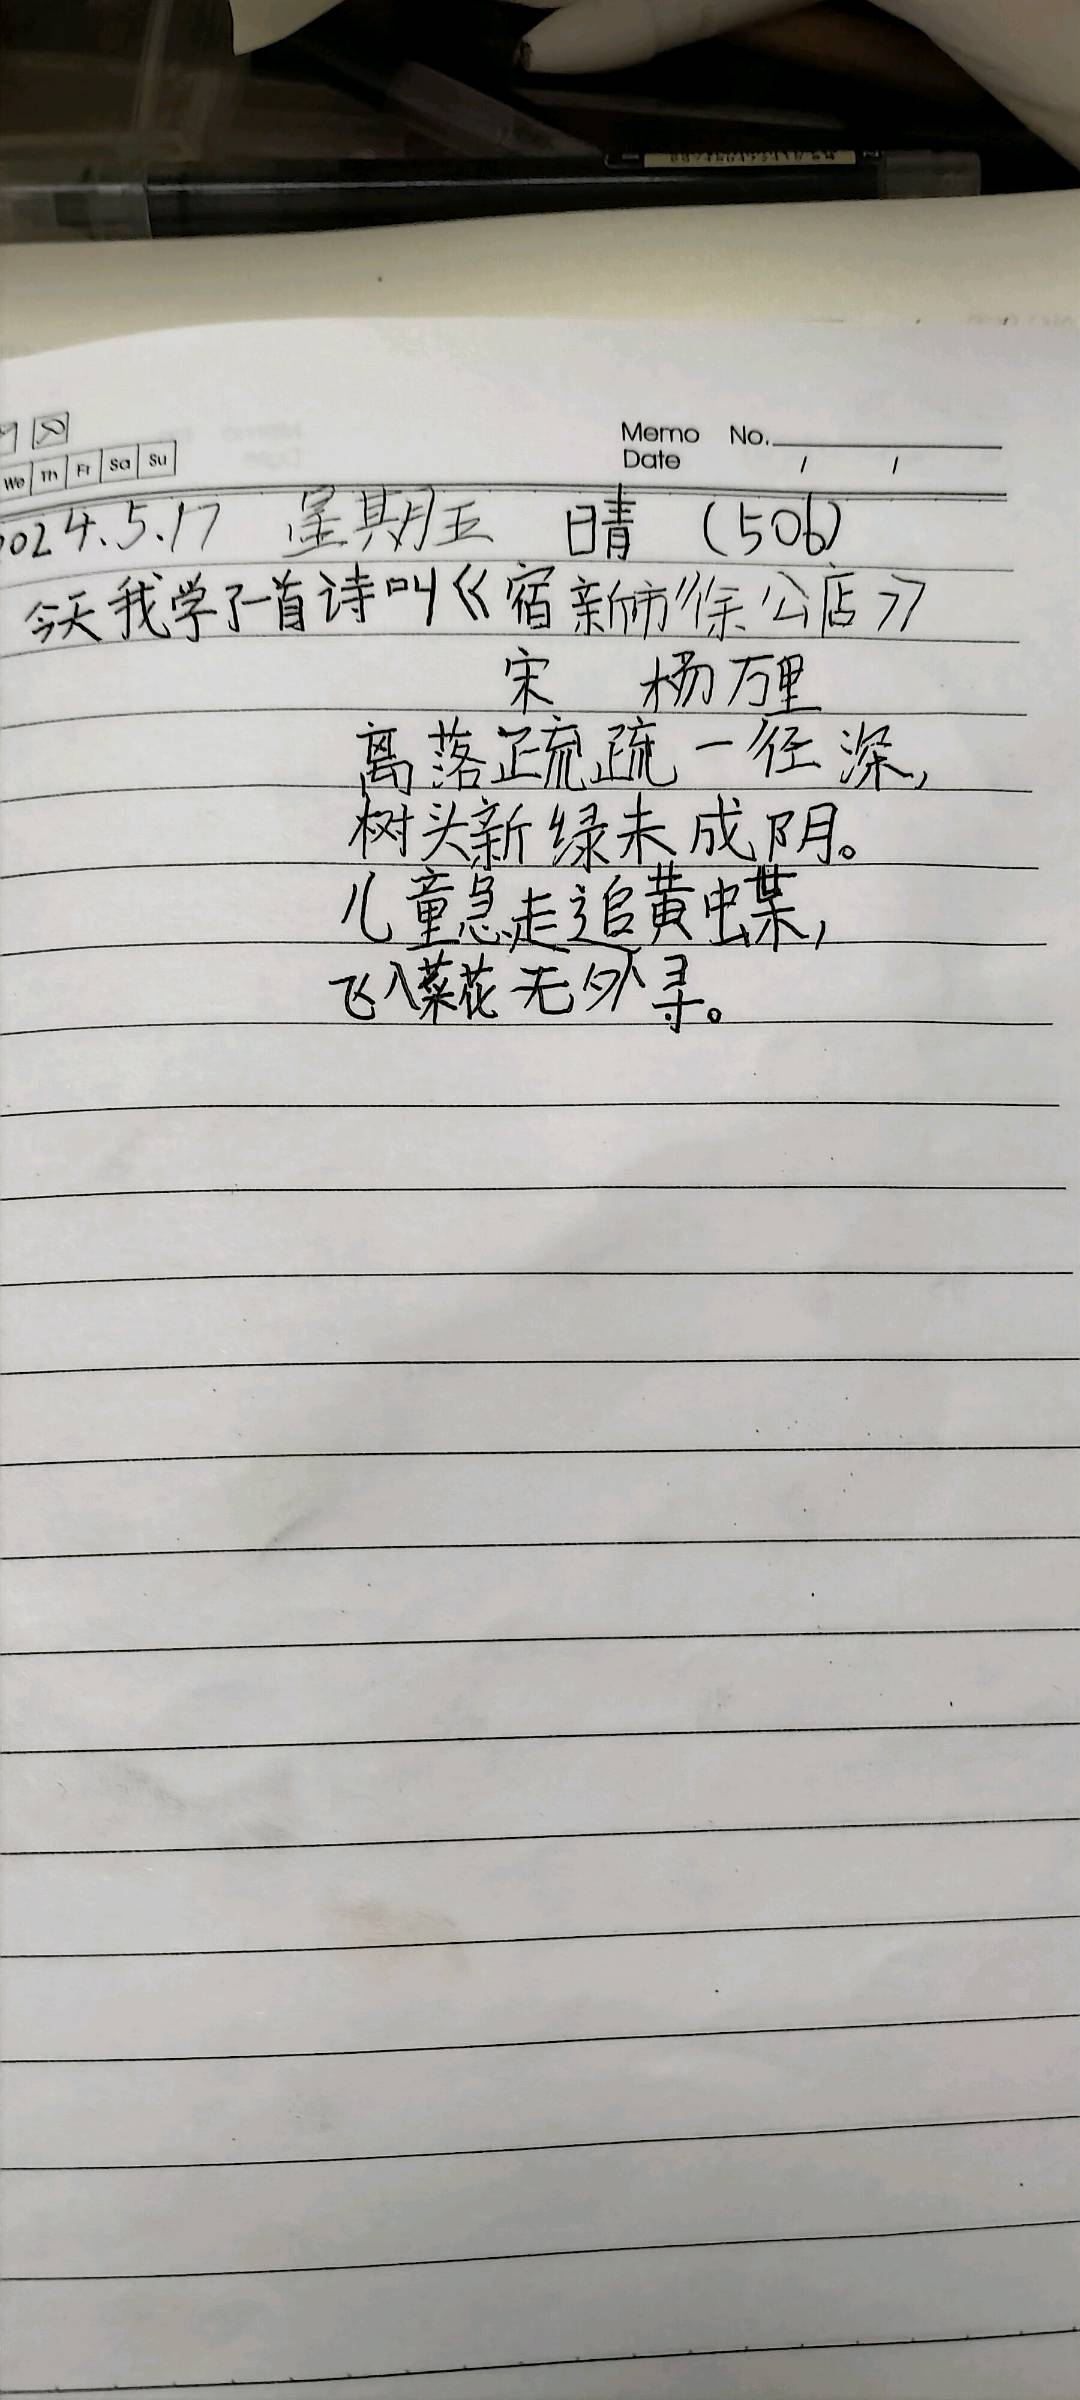 We Th Fr Sa Su
Memo No.
Date / /
2024.5.17 星期五 晴 (506)
今天我学了一首诗叫《宿新市徐公店》
宋 杨万里
离落疏疏一径深,
树头新绿未成阴。
儿童急走追黄蝶,
飞入菜花无外寻。